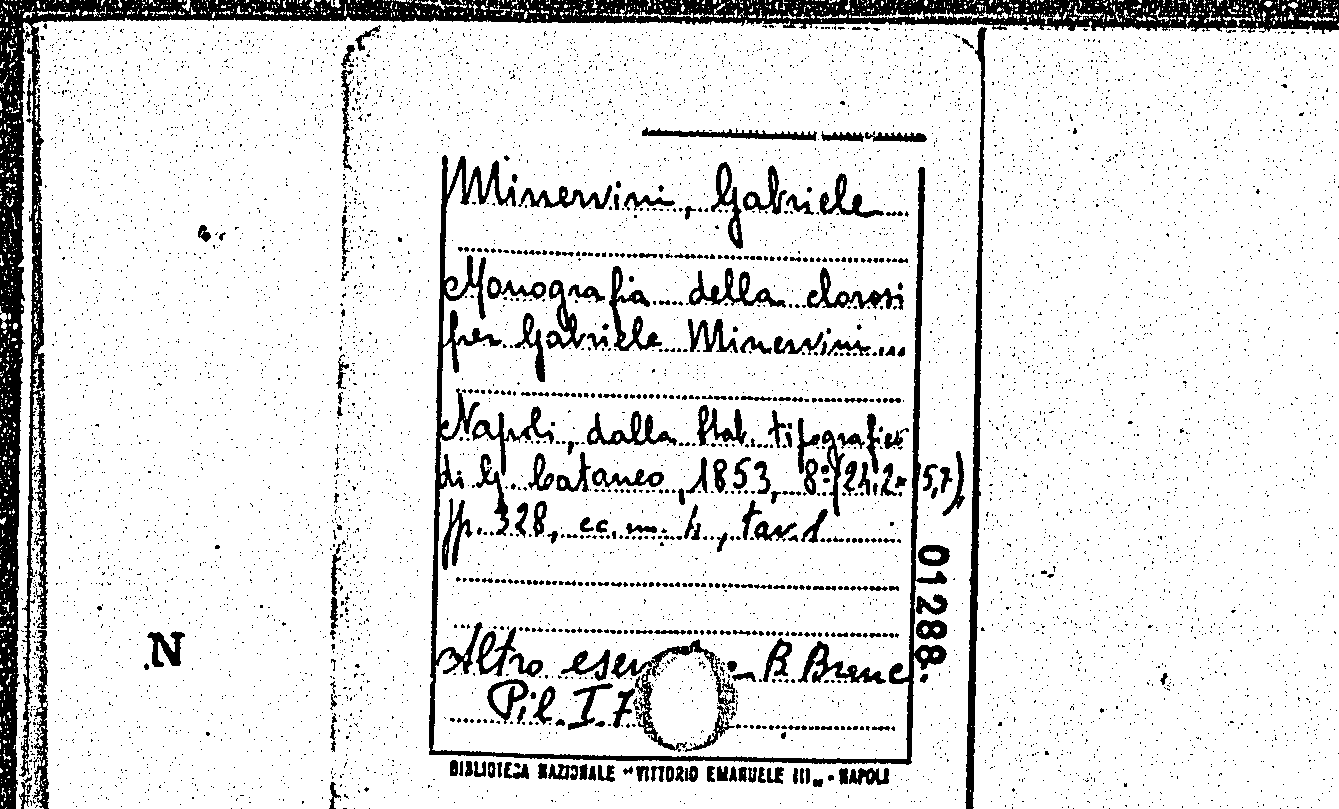 Minervini, Gabriele
Monografia della clorosi
per Gabriele Minervini...
Napoli, dalla Stab. tipografico
di G. Cataneo, 1853, 8° (24,2 × 15,7),
pp. 328, ec. nn. 4, tav. 1
01288
Altro B Branc.
N
Pil. I. 7
BIBLIOTECA NAZIONALE "VITTORIO EMANUELE III„ - NAPOLI